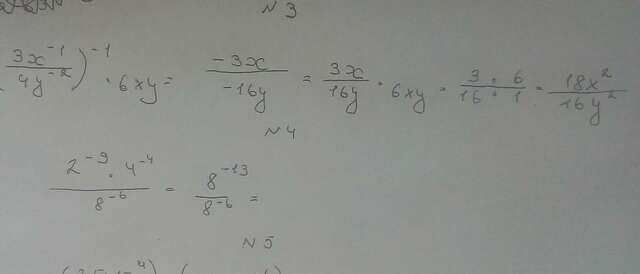 N 3
3x⁻¹/4y⁻²)⁻¹ · 6xy = -3x/-16y = 3x/16y · 6xy = 3 · 6/16 · 1 = 18x²/16y²
N 4
2⁻⁹ · 4⁻⁴/8⁻⁶ = 8⁻¹³/8⁻⁶ =
N 5